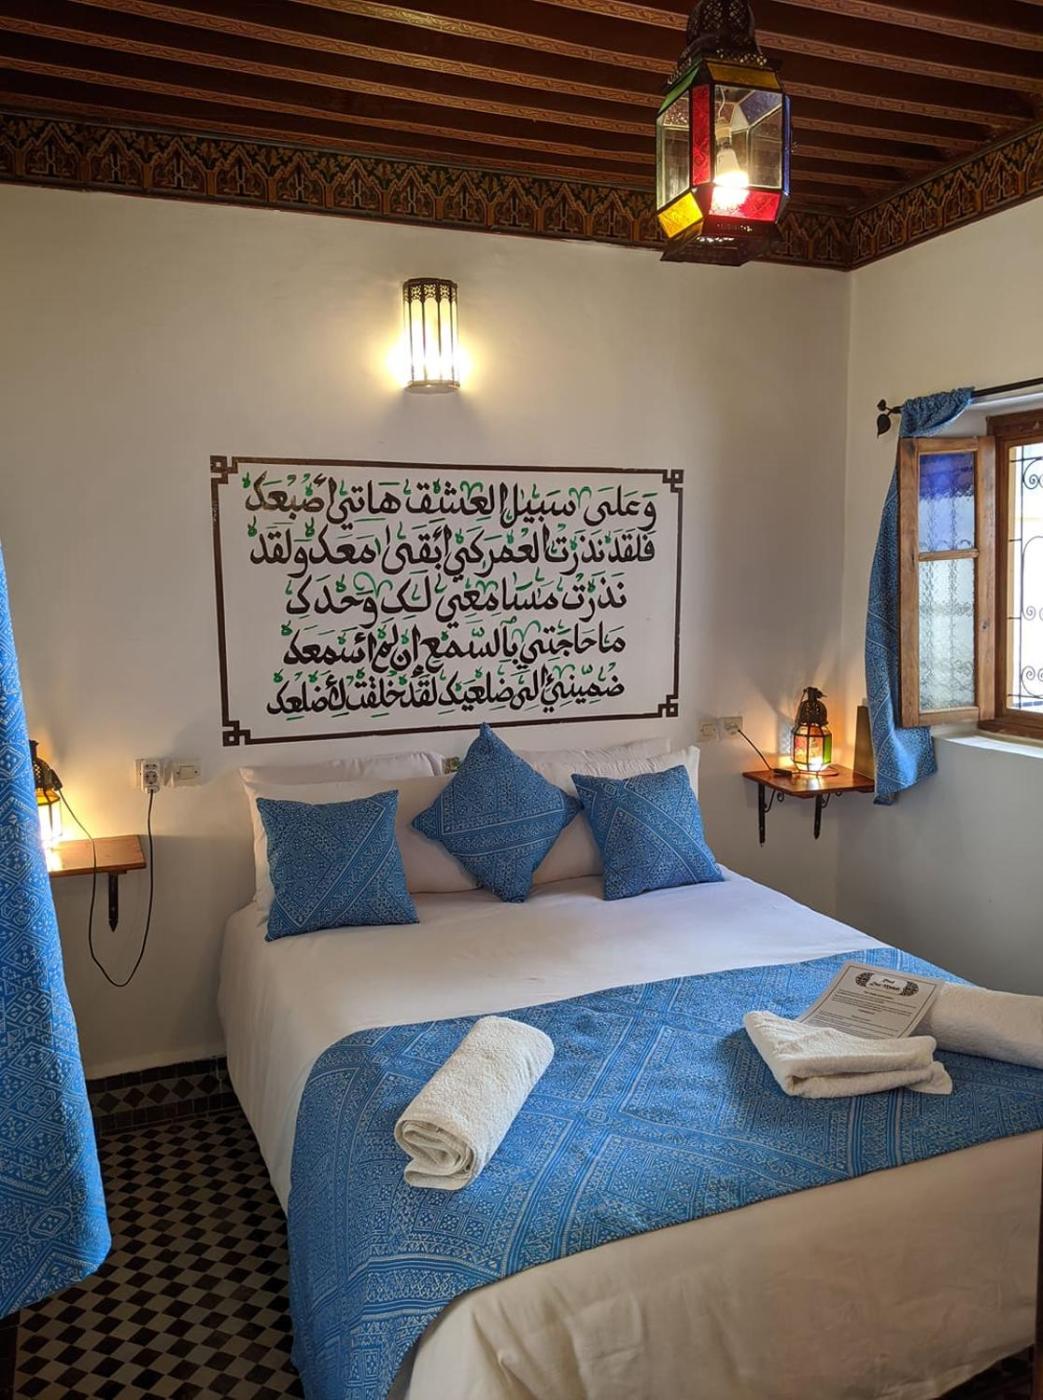 وَعَلَى سَبِيلِ الْعِشْقِ هَاتِي أَصْبُعَكْ
فَلَقَدْ نَذَرْتُ الْعُمْرَ كَيْ أَبْقَى مَعَكْ وَلَقَدْ
نَذَرْتُ مَسَامِعِي لَكِ وَحْدَكِ
مَا حَاجَتِي بِالسَّمْعِ إِنْ لَمْ أَسْمَعَكْ
ضُمِّينِي إِلَى ضِلْعَيْكِ لَقَدْ خُلِقْتِ لِأَضْلُعِكْ